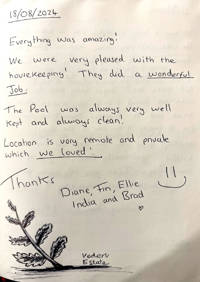 18/08/2024
Everything was amazing!
We were very pleased with the
housekeeping! They did a wonderful
Job.
The Pool was always very well
kept and always clean!
Location is very remote and private
which we loved!
Thanks
Diane, Fin, Ellie
India and Brad
Vedeni
Estate